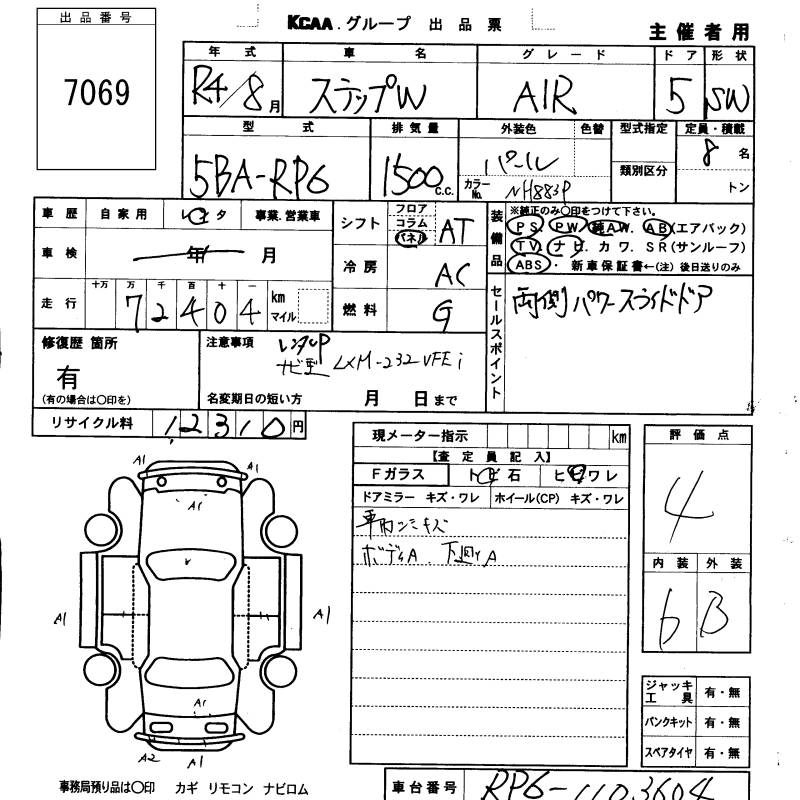 出品番号
7069
KCAA.グループ 出品票
主催者用
年式 車名 グレード ドア 形状
R4/8月 ステップW AIR 5 SW
型式 排気量 外装色 色替 型式指定 定員・積載
5BA-RP6 1500 c.c. パール 8名
カラーNo. NH883P 類別区分 トン
車歴 自家用 レンタ 事業.営業車
車検 年 月
走行 十万 万 千 百 十 一
72404 km マイル
シフト フロア コラム パネル AT
冷房 AC
燃料 G
装備品
※純正のみ〇印をつけて下さい。
PS. PW. 純AW. AB(エアバック)
TV. ナビ. カワ. SR(サンルーフ)
ABS・ 新車保証書←(注)後日送りのみ
セールスポイント
両側パワースライドドア
修復歴 箇所
有
(有の場合は〇印を)
注意事項 レンタUP
ナビ型 LXM-232VFEi
名変期日の短い方 月 日まで
リサイクル料 12310円
現メーター指示 km
【査定員記入】
Fガラス トビ石 ヒビワレ
ドアミラー キズ・ワレ ホイール(CP) キズ・ワレ
車内シミキズ
ボディA. 下廻りA
評価点
4
内装 外装
6 B
ジャッキ工具 有・無
パンクキット 有・無
スペアタイヤ 有・無
A1 A1
A1
A1 A1
A1
A2 A1
事務局預り品は〇印 カギ リモコン ナビロム
車台番号 RP6-1103604